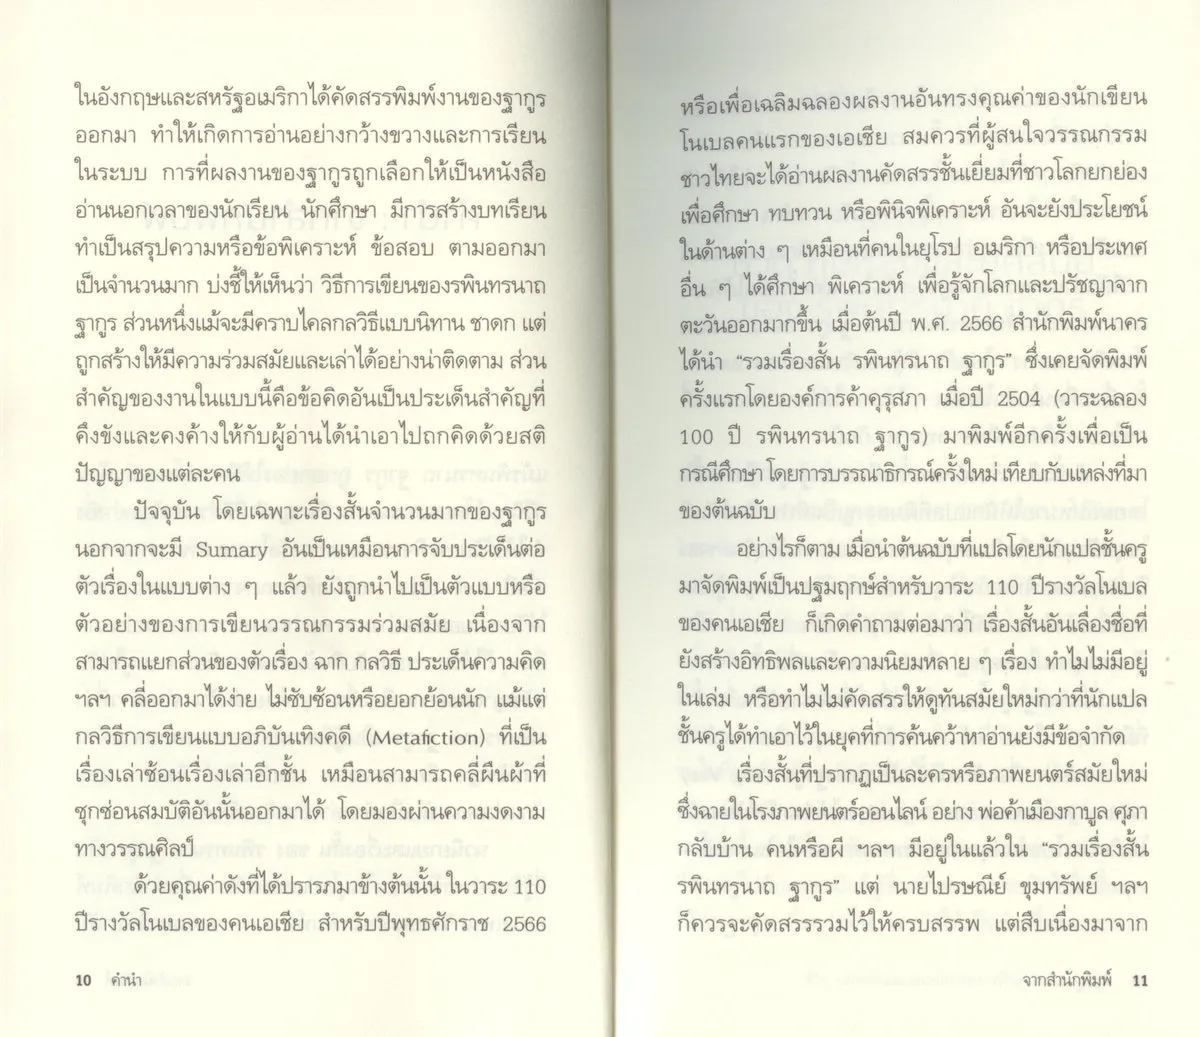 ในอังกฤษและสหรัฐอเมริกาได้คัดสรรพิมพ์งานของฐากูร
ออกมา ทำให้เกิดการอ่านอย่างกว้างขวางและการเรียน
ในระบบ การที่ผลงานของฐากูรถูกเลือกให้เป็นหนังสือ
อ่านนอกเวลาของนักเรียน นักศึกษา มีการสร้างบทเรียน
ทำเป็นสรุปความหรือข้อพิเคราะห์ ข้อสอบ ตามออกมา
เป็นจำนวนมาก บ่งชี้ให้เห็นว่า วิธีการเขียนของรพินทรนาถ
ฐากูร ส่วนหนึ่งแม้จะมีคราบไคลกลวิธีแบบนิทาน ชาดก แต่
ถูกสร้างให้มีความร่วมสมัยและเล่าได้อย่างน่าติดตาม ส่วน
สำคัญของงานในแบบนี้คือข้อคิดอันเป็นประเด็นสำคัญที่
คึงขังและคงค้างให้กับผู้อ่านได้นำเอาไปถกคิดด้วยสติ
ปัญญาของแต่ละคน
ปัจจุบัน โดยเฉพาะเรื่องสั้นจำนวนมากของฐากูร
นอกจากจะมี Sumary อันเป็นเหมือนการจับประเด็นต่อ
ตัวเรื่องในแบบต่าง ๆ แล้ว ยังถูกนำไปเป็นตัวแบบหรือ
ตัวอย่างของการเขียนวรรณกรรมร่วมสมัย เนื่องจาก
สามารถแยกส่วนของตัวเรื่อง ฉาก กลวิธี ประเด็นความคิด
ฯลฯ คลี่ออกมาได้ง่าย ไม่ซับซ้อนหรือยอกย้อนนัก แม้แต่
กลวิธีการเขียนแบบอภิบันเทิงคดี (Metafiction) ที่เป็น
เรื่องเล่าซ้อนเรื่องเล่าอีกชั้น เหมือนสามารถคลี่ผืนผ้าที่
ซุกซ่อนสมบัติอันนั้นออกมาได้ โดยมองผ่านความงดงาม
ทางวรรณศิลป์
ด้วยคุณค่าดังที่ได้ปรารภมาข้างต้นนั้น ในวาระ 110
ปีรางวัลโนเบลของคนเอเชีย สำหรับปีพุทธศักราช 2566
10 คำนำ
หรือเพื่อเฉลิมฉลองผลงานอันทรงคุณค่าของนักเขียน
โนเบลคนแรกของเอเชีย สมควรที่ผู้สนใจวรรณกรรม
ชาวไทยจะได้อ่านผลงานคัดสรรชั้นเยี่ยมที่ชาวโลกยกย่อง
เพื่อศึกษา ทบทวน หรือพินิจพิเคราะห์ อันจะยังประโยชน์
ในด้านต่าง ๆ เหมือนที่คนในยุโรป อเมริกา หรือประเทศ
อื่น ๆ ได้ศึกษา พิเคราะห์ เพื่อรู้จักโลกและปรัชญาจาก
ตะวันออกมากขึ้น เมื่อต้นปี พ.ศ. 2566 สำนักพิมพ์นาคร
ได้นำ “รวมเรื่องสั้น รพินทรนาถ ฐากูร” ซึ่งเคยจัดพิมพ์
ครั้งแรกโดยองค์การค้าคุรุสภา เมื่อปี 2504 (วาระฉลอง
100 ปี รพินทรนาถ ฐากูร) มาพิมพ์อีกครั้งเพื่อเป็น
กรณีศึกษา โดยการบรรณาธิกรณ์ครั้งใหม่ เทียบกับแหล่งที่มา
ของต้นฉบับ
อย่างไรก็ตาม เมื่อนำต้นฉบับที่แปลโดยนักแปลชั้นครู
มาจัดพิมพ์เป็นปฐมฤกษ์สำหรับวาระ 110 ปีรางวัลโนเบล
ของคนเอเชีย ก็เกิดคำถามต่อมาว่า เรื่องสั้นอันเลื่องชื่อที่
ยังสร้างอิทธิพลและความนิยมหลาย ๆ เรื่อง ทำไมไม่มีอยู่
ในเล่ม หรือทำไมไม่คัดสรรให้ดูทันสมัยใหม่กว่าที่นักแปล
ชั้นครูได้ทำเอาไว้ในยุคที่การค้นคว้าหาอ่านยังมีข้อจำกัด
เรื่องสั้นที่ปรากฏเป็นละครหรือภาพยนตร์สมัยใหม่
ซึ่งฉายในโรงภาพยนตร์ออนไลน์ อย่าง พ่อค้าเมืองกาบูล ศุภา
กลับบ้าน คนหรือผี ฯลฯ มีอยู่ในแล้วใน “รวมเรื่องสั้น
รพินทรนาถ ฐากูร” แต่ นายไปรษณีย์ ขุมทรัพย์ ฯลฯ
ก็ควรจะคัดสรรรวมไว้ให้ครบสรรพ แต่สืบเนื่องมาจาก
จากสำนักพิมพ์ 11